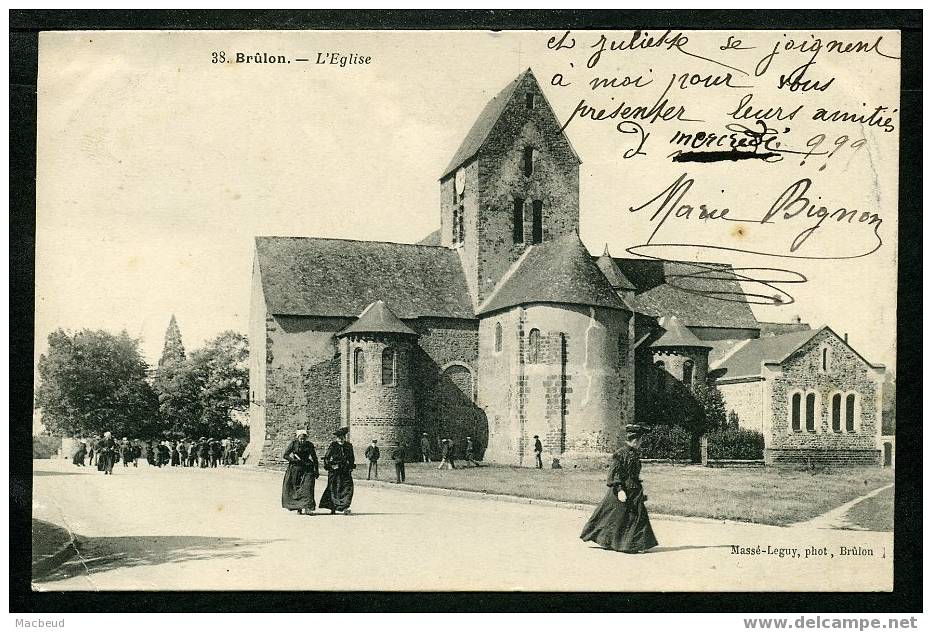 38. Brûlon. — L'Eglise
et Juliette se joignent
à moi pour vous
présenter leurs amitiés
mercredi
Marie Bignon
Massé-Leguy, phot, Brûlon
Macbeud
www.delcampe.net